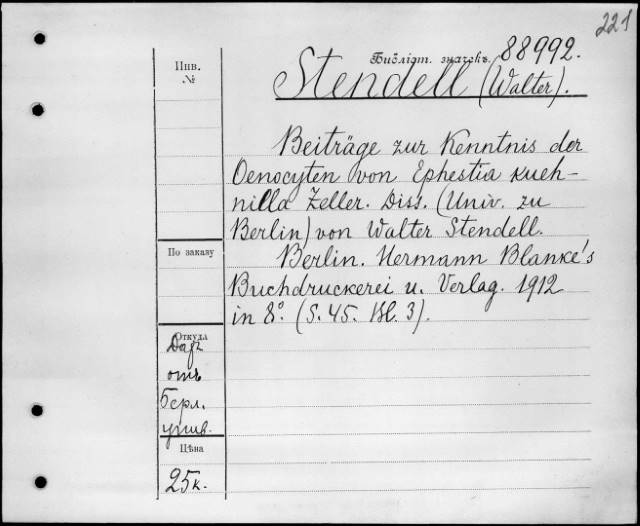 221
Библіот. значекъ. 88992.
Инв.
№
Stendell (Walter).
Beiträge zur Kenntnis der
Oenocyten von Ephestia kueh-
niella Zeller. Diss. (Univ. zu
Berlin) von Walter Stendell.
Berlin. Hermann Blanke's
Buchdruckerei u. Verlag. 1912
in 8°. (S. 45. Bl. 3).
По заказу
Откуда
Даръ
отъ
Берл.
унив.
Цѣна
25к.